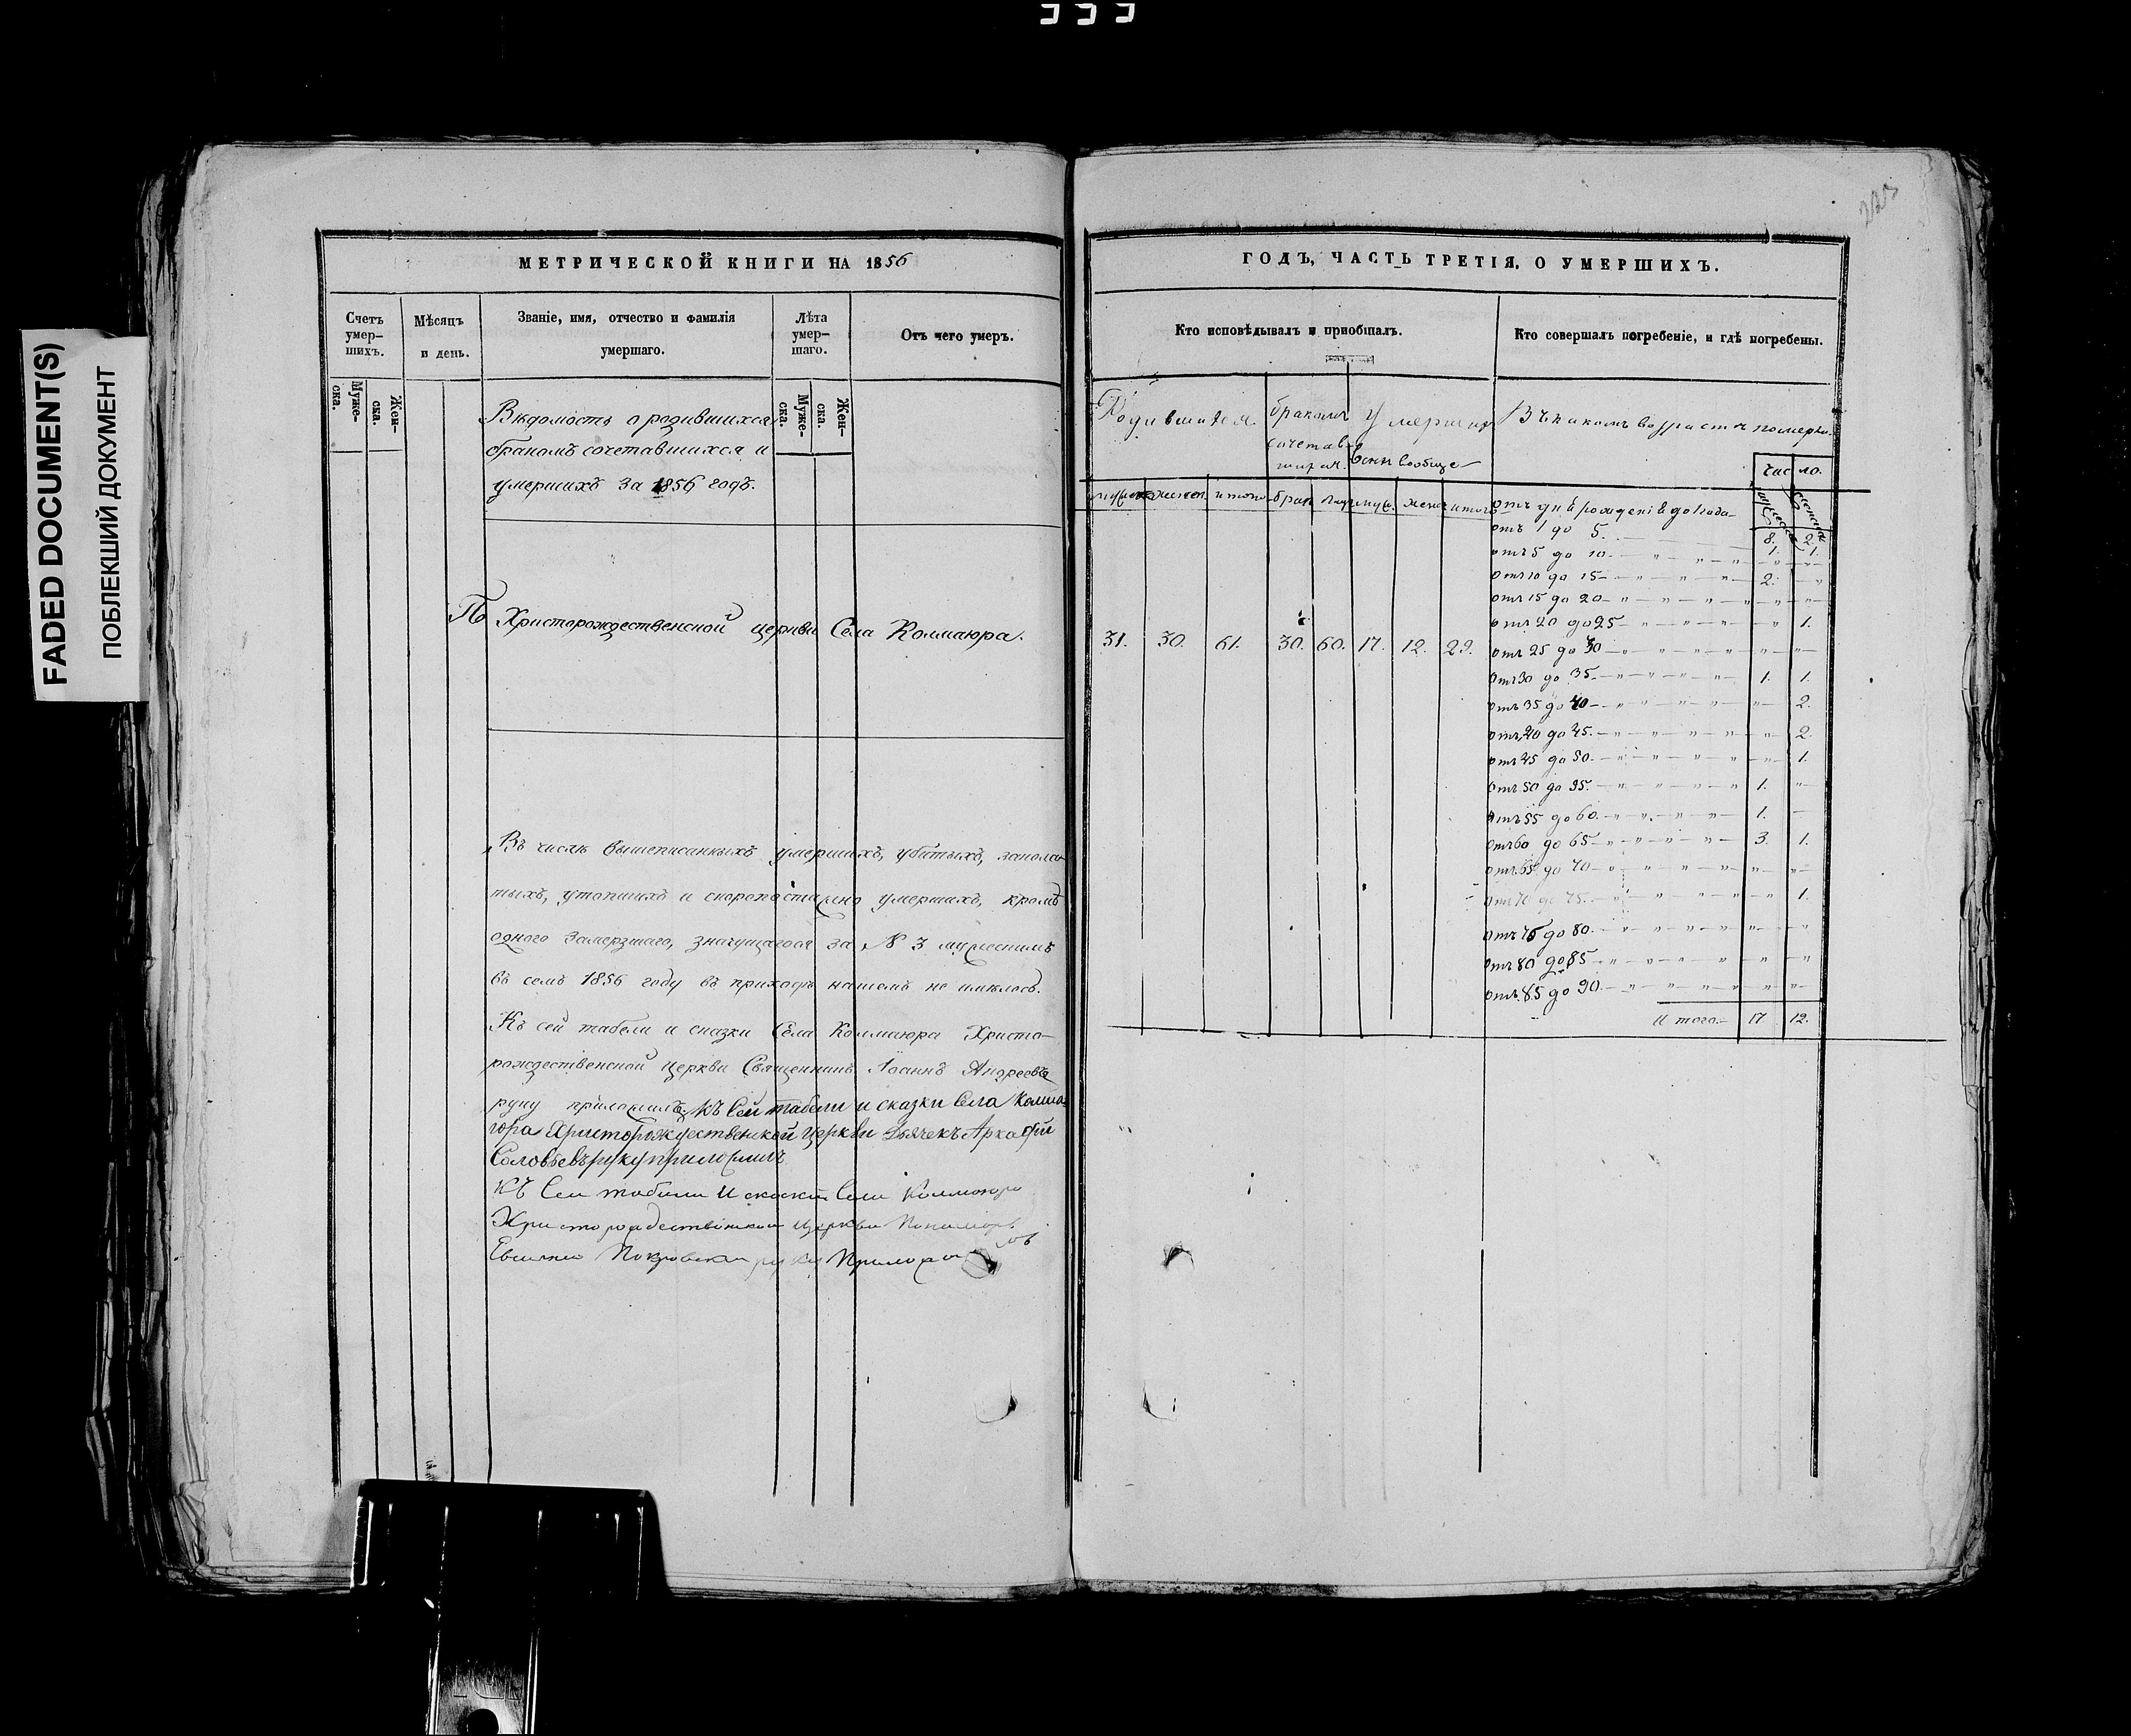 FADED DOCUMENT(S)
ПОБЛЕКШИЙ ДОКУМЕНТ
МЕТРИЧЕСКОЙ КНИГИ НА 1856
Счетъ умер-шихъ.
Мѣсяцъ и день.
Званіе, имя, отчество и фамилія умершаго.
Лѣта умер-шаго.
Отъ чего умеръ.
Муже-ска.
Жен-ска.
Муже-ска.
Жен-ска.
Вѣдомость о родившихся
бракомъ сочетавшихся и
умершихъ за 1856 годъ.
По Христорождественской церкви Села Колмаюра.
Въ числѣ вышеписанныхъ умершихъ, убитыхъ,
тыхъ, утопшихъ и скоропостижно умершихъ, кромѣ
одного замерзшаго, значущагося за № 3 мужескимъ
въ семъ 1856 году въ приходѣ нашемъ не имѣлось.
Къ сей табели и сказки Села Колмаюра Христо-
рождественской Церкви Священникъ Іоаннъ Андреевъ
руку приложилъ. Къ сей табели и сказки Села Колма-
юра Христорождественской Церкви Дьячекъ Аркадій
Соловьевъ руку приложилъ
Къ Сей табели И Села Колмаюра
Христорождественской Церкви Пономарь
Покровскій руку Приложилъ
ГОДЪ, ЧАСТЬ ТРЕТІЯ, О УМЕРШИХЪ.
Кто исповѣдывалъ и пріобщалъ.
Кто совершалъ погребеніе, и гдѣ погребены.
Родившихся.
бракомъ
сочетав-
шихся.
Умершихъ
вообще
Въ какомъ возрастѣ померли.
Число.
мужеск. женск. итого брак. муж. женс. итого
31. 30. 61. 30. 60. 17. 12. 29.
отъ дня рожденія до 1 года 8. 2.
отъ 1 до 5. 1. 1.
отъ 5 до 10. — „ — „ — „ — „
отъ 10 до 15 — „ — „ — „ — 2. „
отъ 15 до 20 — „ — „ — „ — „ — „
отъ 20 до 25 — „ — „ — „ — „ 1.
отъ 25 до 30 — „ — „ — „ — „ — „
отъ 30 до 35. — „ — „ — „ — 1. 1.
отъ 35 до 40 — „ — „ — „ — „ 2.
отъ 40 до 45. — „ — „ — „ — „ 2.
отъ 45 до 50. — „ — „ — „ — „ 1.
отъ 50 до 55. — „ — „ — „ — 1. „
отъ 55 до 60. — „ — „ — „ — 1. —
отъ 60 до 65 — „ — „ — „ — 3. 1.
отъ 65 до 70 — „ — „ — „ — „ — „
отъ 70 до 75. — „ — „ — „ — „ 1.
отъ 75 до 80. — „ — „ — „ — „ — „
отъ 80 до 85 — „ — „ — „ — „ — „
отъ 85 до 90. — „ — „ — „ — „ — „
Итого. — 17 12.